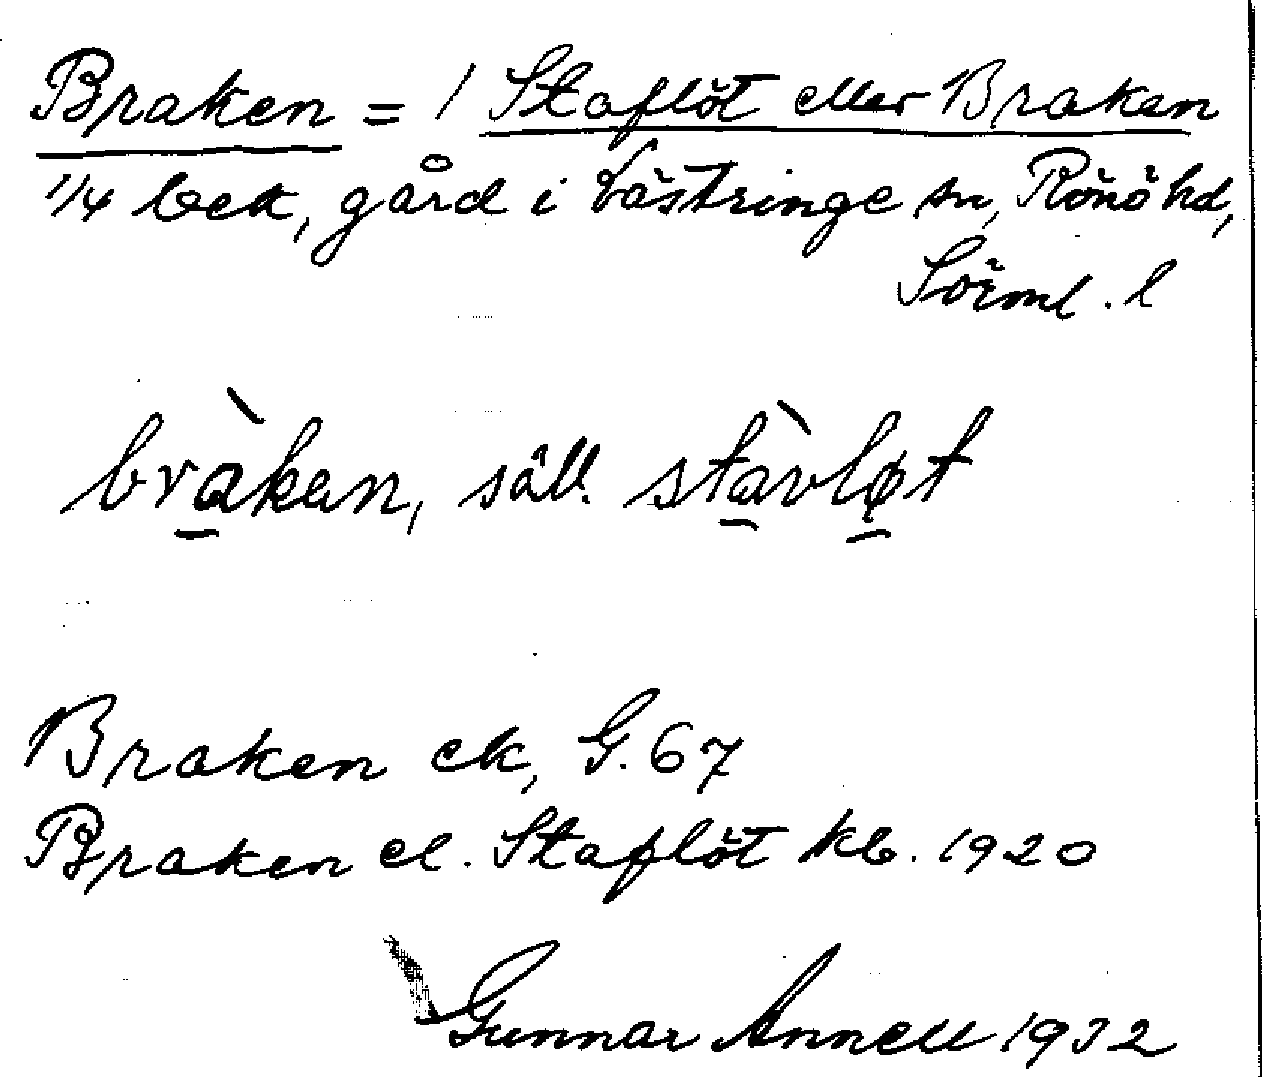 Braken = 1 Staflöt eller Braken
1/4 beck, gård i Lästringe sn, Rönö hd,
Sörml. l
bràken, säll. stàvlǿt
Braken ek, G. 67
Braken el. Staflöt kb. 1920
Gunnar Annell 1932